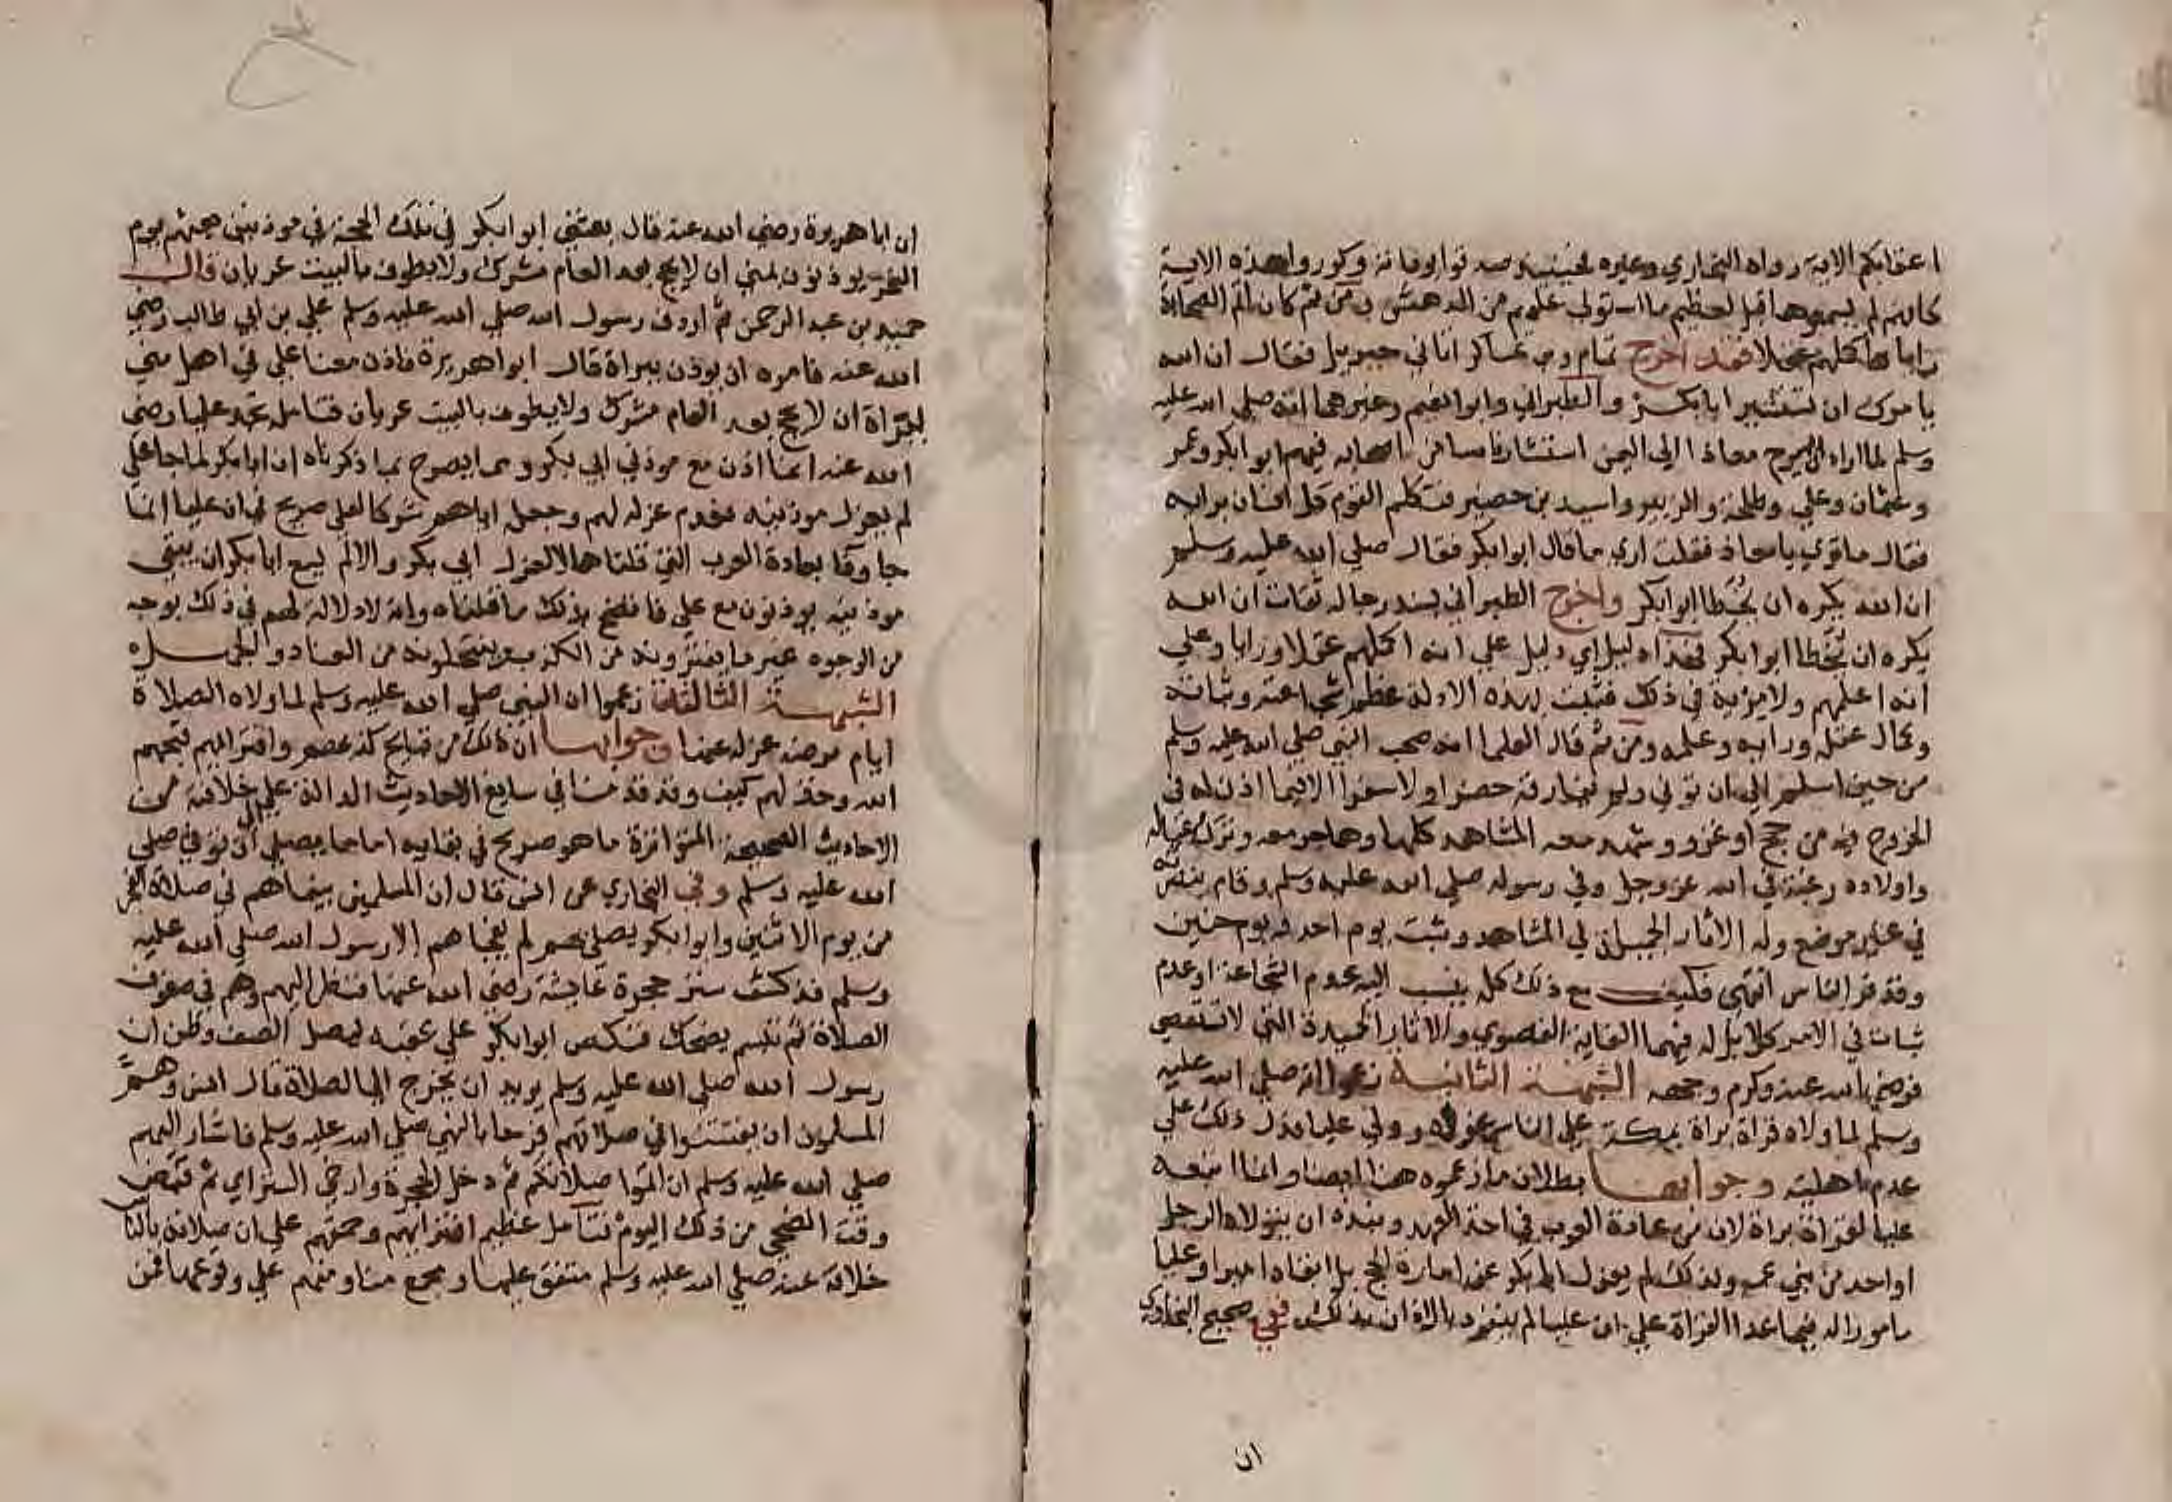 اعقابكم الاية رواه البخاري وغيره فحينئذ صدقوا بوفاته وكرروا هذه الاية
كانهم لم يسمعوها قبل لعظم ما استولى عليهم من الدهش ومن ثم كان اتم الصحابة
رايا واكملهم عقلا فقد اخرج تمام وبن عساكر اتاني جبريل فقال ان الله
يامرك ان تستشير ابابكر والطبراني وابو نعيم وغيرهما انه صلي الله عليه
وسلم لما اراد ان يسرح معاذا الي اليمن استشار ناسا من اصحابه فيهم ابو ابكر وعمر
وعثمان وعلي وطلحة والزبير واسيد بن حضير فتكلم القوم كل انسان برايه
فقال ما تري يا معاذ فقلت اري ما قال ابو ابكر فقال صلي الله عليه وسلم
ان الله يكره ان يخطا ابو ابكر واخرج الطبراني بسند رجاله ثقات ان الله
يكره ان يخطا ابو ابكر فهذا دليل اي دليل علي انه اكملهم عقلا ورايا وعلي
انه اعلمهم ولا مرية في ذلك فثبت بهذه الادلة عظم شجاعته وثباته
وكمال عقله ورايه وعلمه ومن ثم قال العلما انه صحب النبي صلي الله عليه وسلم
من حين اسلم الي ان توفي ولم يفارقه حضرا ولا سفرا الا فيما اذن له في
الخروج فيه من حج او غزو وشهد معه المشاهد كلها وهاجر معه وترك عياله
واولاده رغبة في الله عز وجل وفي رسوله صلي الله عليه وسلم وقام بنصرته
في غير موضع وله الاثار الجميلة في المشاهد وثبت يوم احد ويوم حنين
وقد فر الناس انتهي فكيف مع ذلك كله ينسب اليه عدم الشجاعة او عدم
ثبات في الامر كلا بل له فيهما الغاية القصوي والاثار الحميدة التي لا تستقصي
فرضي الله عنه وكرم وجهه الشبهة الثانية زعموا انه صلي الله عليه
وسلم لما ولاه قراة براة بمكة علي الناس عزله وولي عليا فدل ذلك علي
عدم اهليته وجوابها بطلان ما زعموه هنا ايضا وانما اتبعه
عليا لقراة براة لان من عادة العرب في اخذ العهد ونبذه ان يتولاه الرجل
او احد من بني عمه ولذلك لم يعزل ابا بكر عن امارة الحج بل ابقاه اميرا وعليا
مامورا له فيما عدا القراة علي ان عليا لم ينفرد بالاذان بذلك ففي صحيح البخاري
ان
ان ابا هريرة رضي الله عنه قال بعثني ابو ابكر في تلك الحجة في موذنين بعثهم يوم
النحر يوذنون بمني ان لا يحج بعد العام مشرك ولا يطوف بالبيت عريان قال
حميد بن عبد الرحمن ثم اردف رسول الله صلي الله عليه وسلم علي بن ابي طالب رضي
الله عنه فامره ان يوذن ببراة قال ابو اهريرة فاذن معنا علي في اهل مني
ببراة ان لا يحج بعد العام مشرك ولا يطوف بالبيت عريان فتامله تجد عليا رضي
الله عنه انما اذن مع موذني ابي بكر ومما يصرح بما ذكرناه ان ابا بكر لما جا علي
لم يعزل موذنيه فعدم عزله لهم وجعله اياهم شركا لعلي صريح في ان عليا انما
جا وفا بعادة العرب التي قلناها لا لعزل ابي بكر والا لم يسع ابا بكر ان يبقي
موذنيه يوذنون مع علي فاتضح بذلك ما قلناه وانه لا دلالة لهم في ذلك بوجه
من الوجوه غير ما يفترونه من الكذب وينتحلونه من العناد والجهل
الشبهة الثالثة زعموا ان النبي صلي الله عليه وسلم لما ولاه الصلاة
ايام مرضه عزله عنها وجوابها ان ذلك من قبايح كذبهم وافترايهم فقبحهم
الله وخذلهم كيف وقد قدمنا في سابع الاحاديث الدالة علي خلافته من
الاحاديث الصحيحة المتواترة ما هو صريح في بقايه اماما يصلي الي ان توفي صلي
الله عليه وسلم وفي البخاري عن انس قال ان المسلمين بينما هم في صلاة الفجر
من يوم الاثنين وابو ابكر يصلي بهم لم يفجاهم الا رسول الله صلي الله عليه
وسلم قد كشف ستر حجرة عايشة رضي الله عنها فنظر اليهم وهم في صفوف
الصلاة ثم تبسم يضحك فنكص ابو ابكر علي عقبه ليصل الصف وظن ان
رسول الله صلي الله عليه وسلم يريد ان يخرج الي الصلاة قال انس وهم
المسلمون ان يفتتنوا في صلاتهم فرحا بالنبي صلي الله عليه وسلم فاشار اليهم
صلي الله عليه وسلم ان اتموا صلاتكم ثم دخل الحجرة وارخي الستر اي ثم قبض
وقت الضحي من ذلك اليوم فتامل عظيم افترايهم وحمقهم علي ان صلاته بالناس
خلافة عنه صلي الله عليه وسلم متفق عليها ومجمع منا ومنهم علي وقوعها فمن